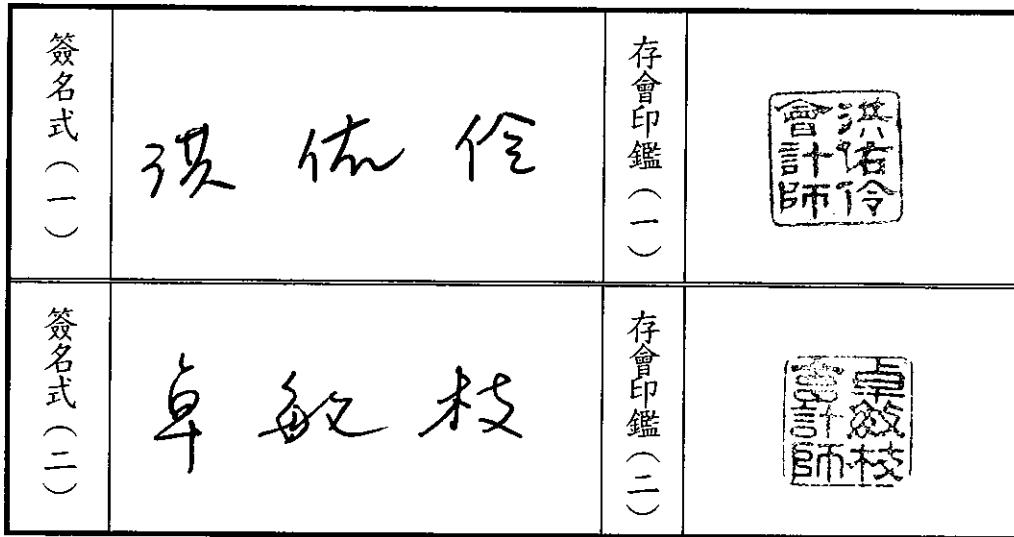 簽名式（一）
洪佑伶
存會印鑑（一）
洪佑伶
會計師
簽名式（二）
卓敏枝
存會印鑑（二）
卓敏枝
會計師